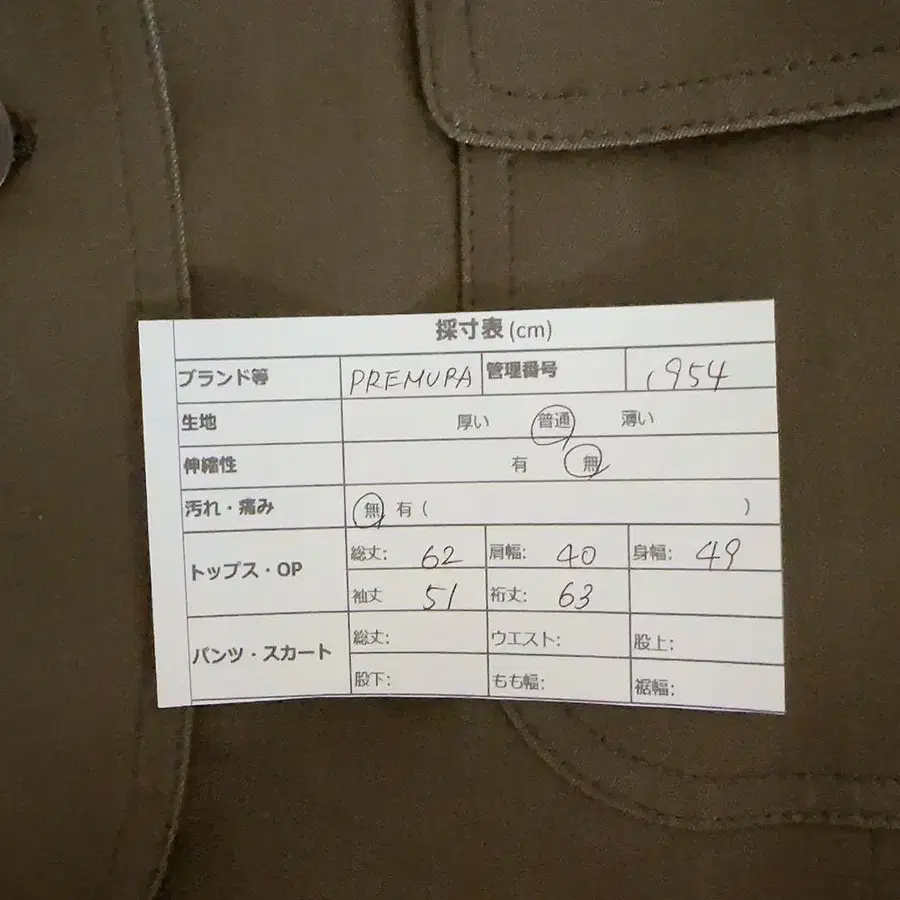 採寸表(cm)
ブランド等 PREMURA 管理番号 1954
生地 厚い 普通 薄い
伸縮性 有 無
汚れ・痛み 無 有 ( )
トップス・OP 総丈: 62 肩幅: 40 身幅: 49
袖丈 51 裄丈: 63
パンツ・スカート 総丈: ウエスト: 股上:
股下: もも幅: 裾幅: